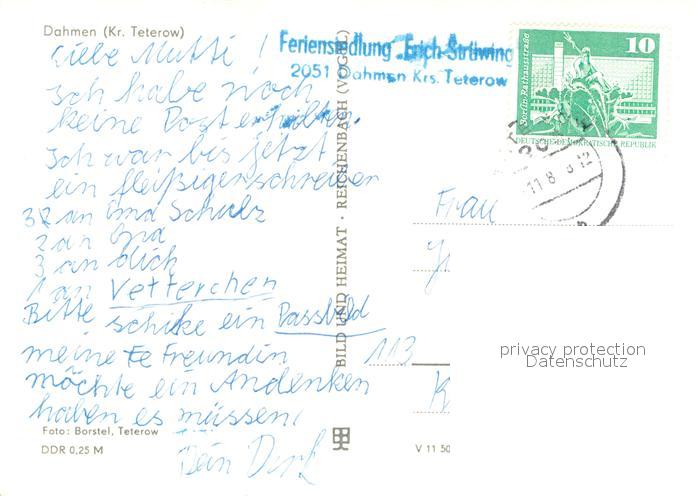 Dahmen (Kr. Teterow)
Liebe Mutti!
Ich habe noch
keine Post erhalten.
Ich war bis jetzt
ein fleißigenschreiber
3 an Oma Schulz
2 an Opa
3 an dich
1 an Vetterchen
Bitte schike ein Passbild
meine Freundin
möchte ein Andenken
haben es müssen
Dein Dirk
Foto: Borstel, Teterow
DDR 0,25 M
BILD UND HEIMAT · REICHENBACH (VOGEL)
V 11 50
Feriensiedlung Erich Strüwing
2051 Dahmen Krs. Teterow
10
Berlin-Rathausstraße
DEUTSCHE DEMOKRATISCHE REPUBLIK
11.8. 12
Frau
113
K
privacy protection
Datenschutz